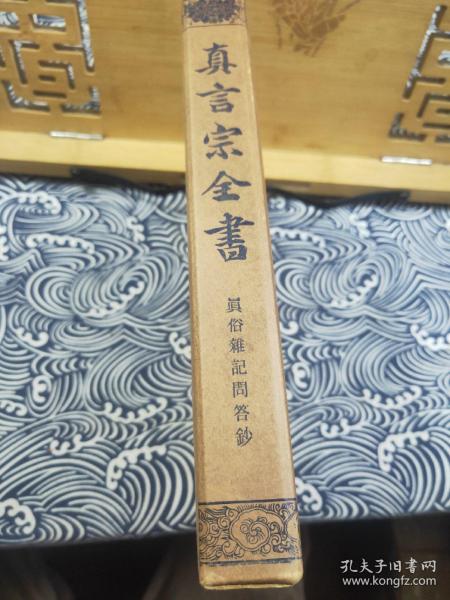 真言宗全書
眞俗雜記問答鈔
孔夫子旧书网
www.kongfz.com